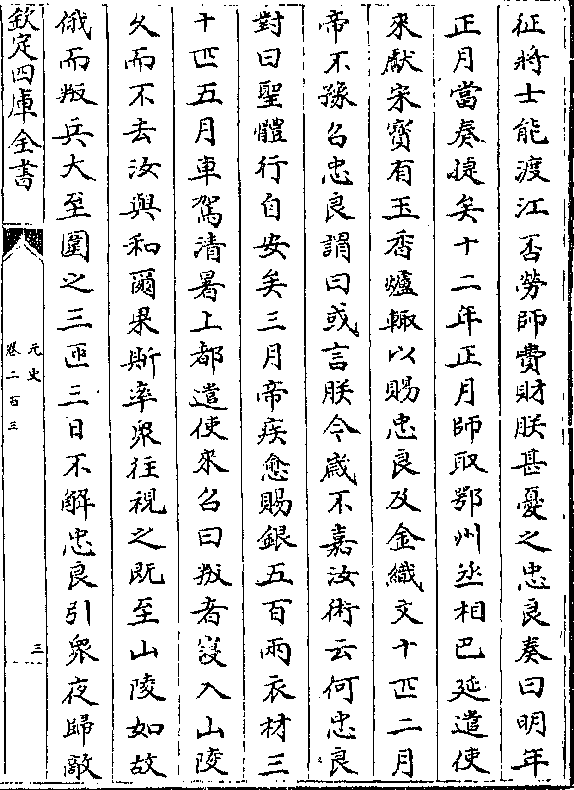 征將士能渡江否勞師費財朕甚憂之忠良奏曰明年
正月當奏捷矣十二年正月師取鄂州丞相巴延遣使
來獻宋寳有玉香爐輙以賜忠良及金織文十匹二月
帝不豫召忠良謂曰或言朕今歲不嘉汝術云何忠良
對曰聖體行自安矣三月帝疾愈賜銀五百兩衣材三
十匹五月車駕清暑上都遣使來召曰叛者寖入山陵
久而不去汝與和爾果斯率衆往視之既至山陵如故
俄而叛兵大至圍之三匝三日不解忠良引衆夜歸敵
欽定四庫全書
元史
卷二百三
三